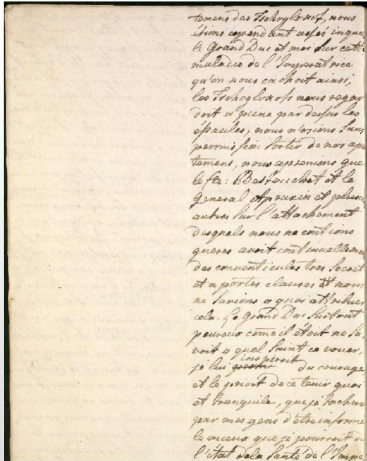 temens des Tschoglokof, nous
étions cependant assés inquie
le Grand Duc et moi sur cette
maladie de l'Imperatrice
qu'on nous cachoit ainsi,
les Tschoglokofs nous regar
doit a peine par dessus les
épaules, nous n'osions sans
permission sortir de nos apar
temens, nous aprenions que
le Cte: Bestouchef et le
General Apraxin et plusieu
autres sur l'attachement
desquels nous ne contions
gueres avoit continuellemen
des conventicules tres secret
et a portes closes, et nous
ne savions a quoi attribuer
cela. Le Grand Duc surtout
peureux come il étoit ne sa
voit a quel Saint ce vouer,
je lui inspirois du courage
et le priois de ce tenir quoi
et tranquile, que je tacherai
par mes gens d'être informé
le mieux que je pourrois de
l'état de la Santé de l'Impe